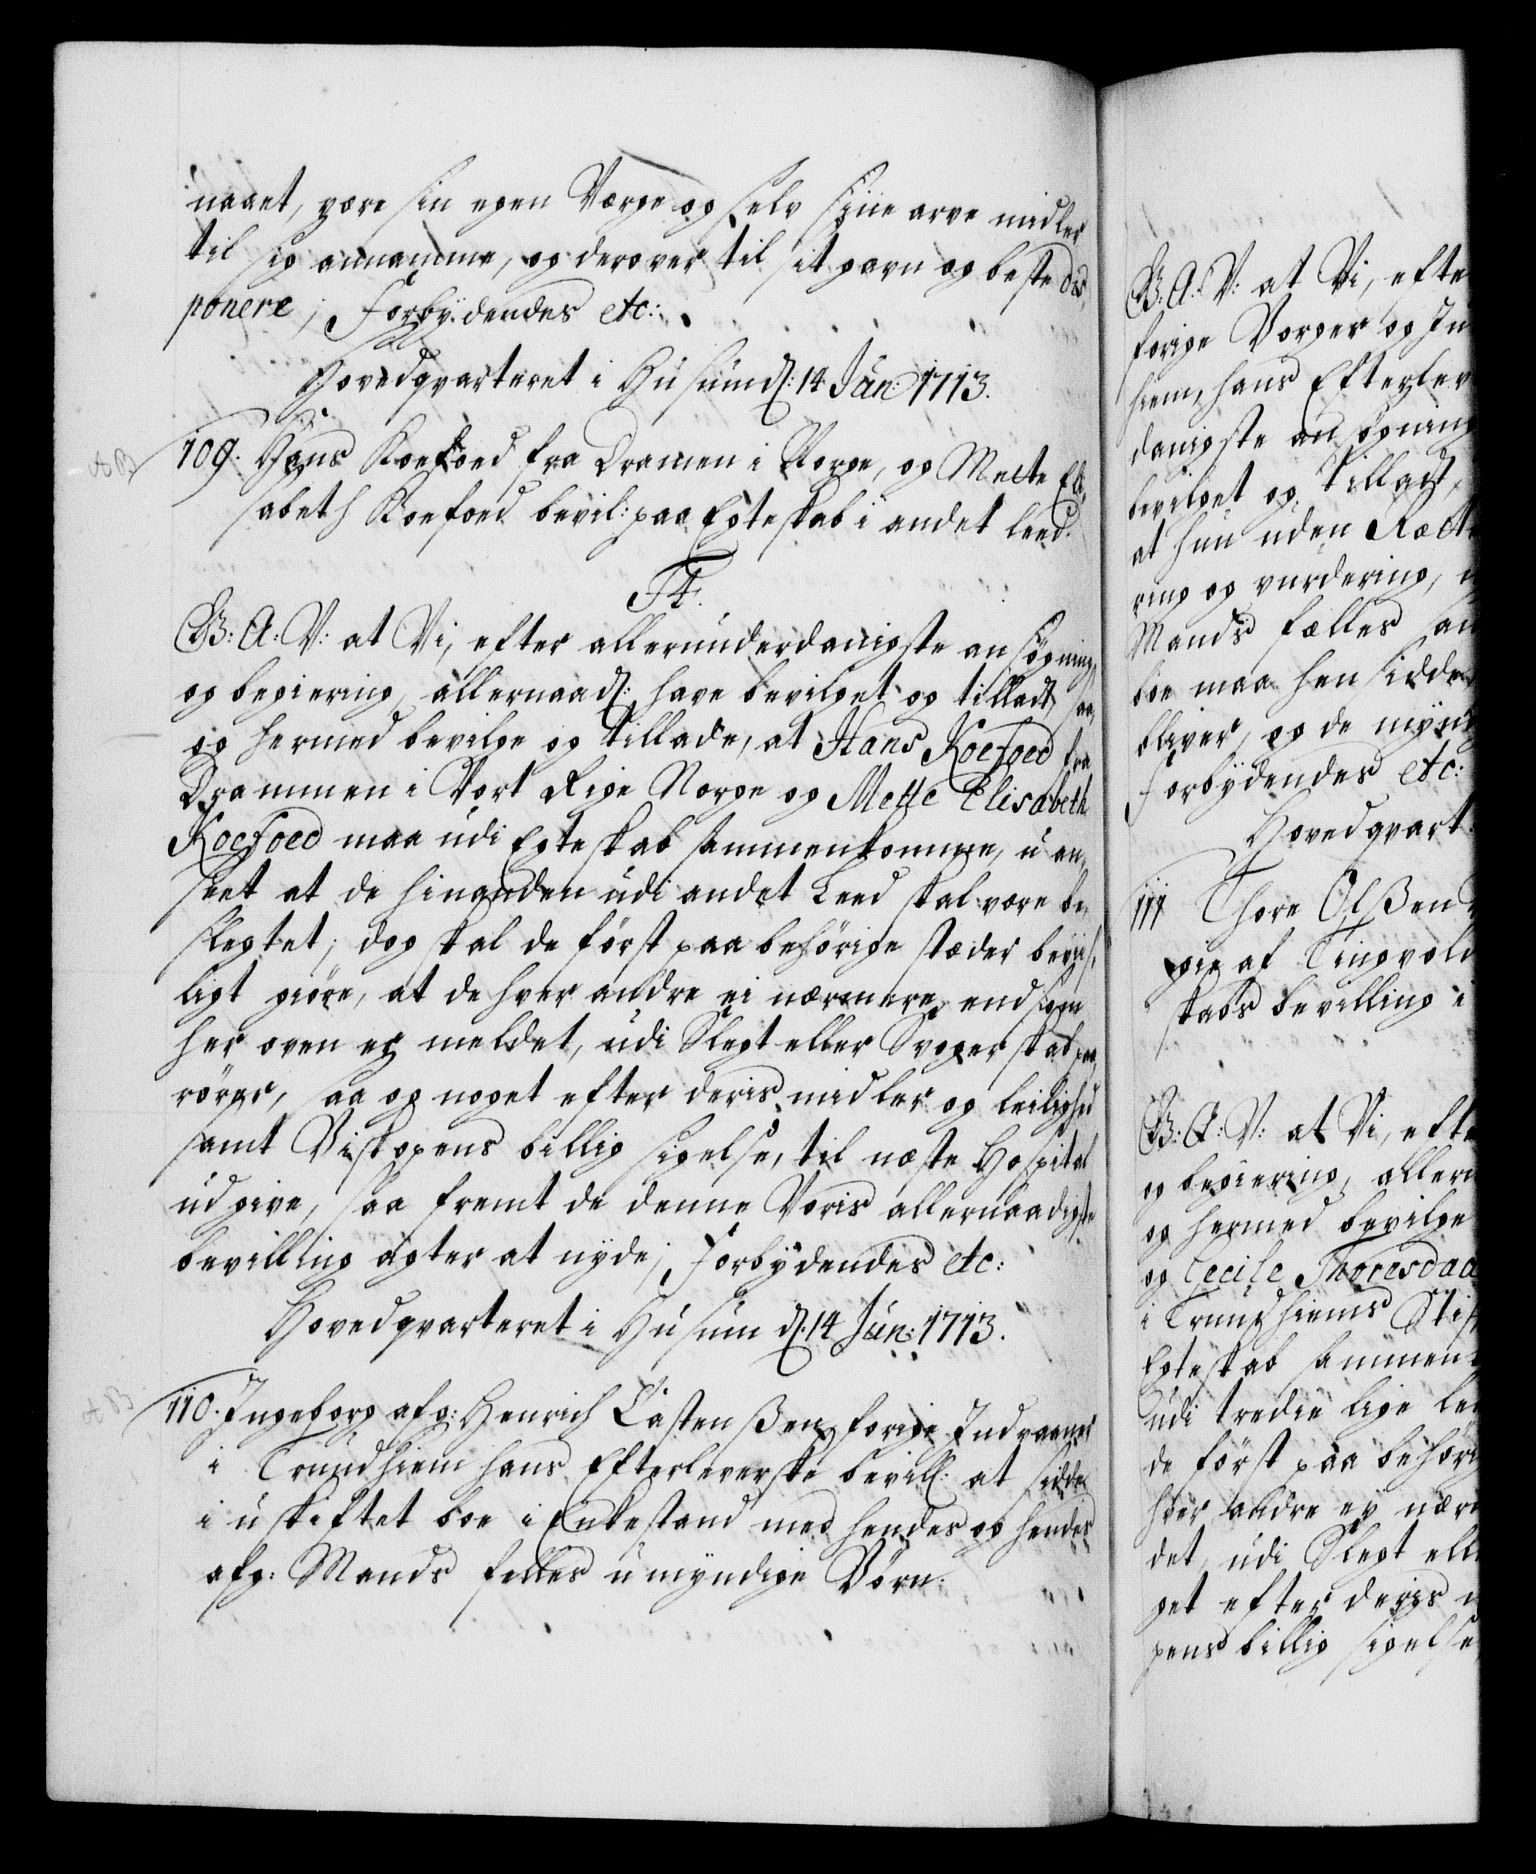 naaet, være sin egen Værge og selv siine arve midler
til sig annamme, og derover til sit gavn og beste dis,
ponere; Forbydendes etc:
Hovedqvarteret i Husum d: 14 Jun: 1713.
109. Hans Koefoed fra Dramen i Norge, og Mette Eli,
sabeth Koefoed bevil: paa Egteskab i andet leed.
F4.
G: A: V: at Vi, efter allerunderdanigste ansøgning
og begiering, allernaad: have bevilget og tilladt, saa,
og hermed bevilge og tillade, at Hans Koefoed fra
Drammen i Vort Rige Norge og Mette Elisabeth
Koefoed maa udi Egteskab sammenkomme, u an,
seet at de hinanden udi andet Leed skal være be,
slegtet; dog skal de først paa behørige stæder beviis,
ligt giøre, at de hver andre ei nærmere, end som
her oven er meldet, udi Slegt eller Svogerskab paa,
rører, saa og noget efter deris midler og leilighed
samt Biskopens billig sigelse, til næste Hospital
udgive, saa fremt de denne Voris allernaadigste
bevilling agter at nyde; Forbydendes etc:
Hovedqvarteret i Husum d: 14 Jun: 1713.
110. Ingeborg afg: Henrich Castenßen forige Indvaaner
i Trundhiem hans Efterleverske bevill: at sidde
i uskiftet boe i Enkestand med hendes og hendes
afg: Mands felles umyndige Børn.
G: A: V: at Vi, efte
forige Borger og In
hiem, hans Efterlev
danigste ansøgning
bevilget og tilladt,
at hun uden Rætt
ring og vurdering,
Mands fælles
boe maa hensidde
bliver, og de mynd
Forbydendes etc:
Hovedqvart
111 Thore Olßen
gie af Tingvold
skabs bevilling i
G: A: V: at Vi, efte
og begiering, allern
og hermed bevilge
og Cecile Thoresdaa
i Trundhiems Stif
Egteskab sammen
udi tredie lige lee
de først paa behøri
hver andre ey nær
det, udi Slegt ell
get efter deris
pens billig sigelse